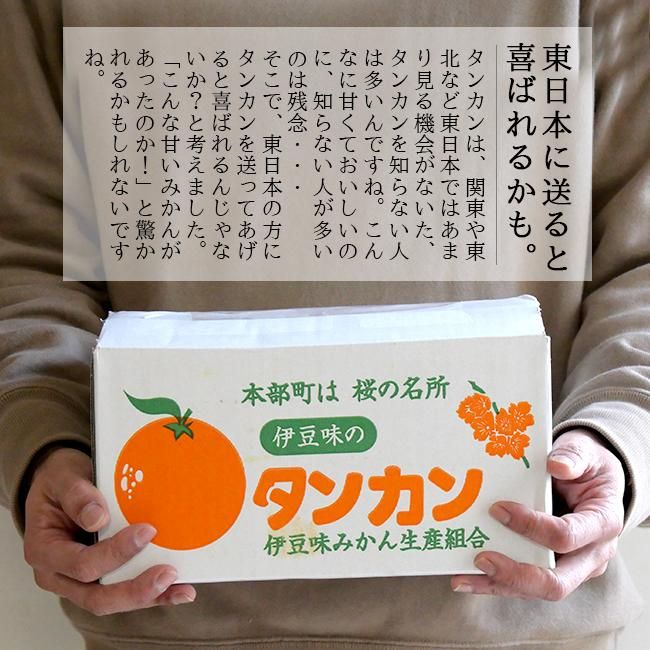 東日本に送ると
喜ばれるかも。
タンカンは、関東や東
北など東日本ではあま
り見る機会がない、
タンカンを知らない人
は多いんですね。こん
なに甘くておいしいの
に、知らない人が多い
のは残念・・・
そこで、東日本の方に
タンカンを送ってあげ
ると喜ばれるんじゃな
いか?と考えました。
「こんな甘いみかんが
あったのか!」と驚か
れるかもしれないです
ね。
本部町は 桜の名所
伊豆味の
タンカン
伊豆味みかん生産組合